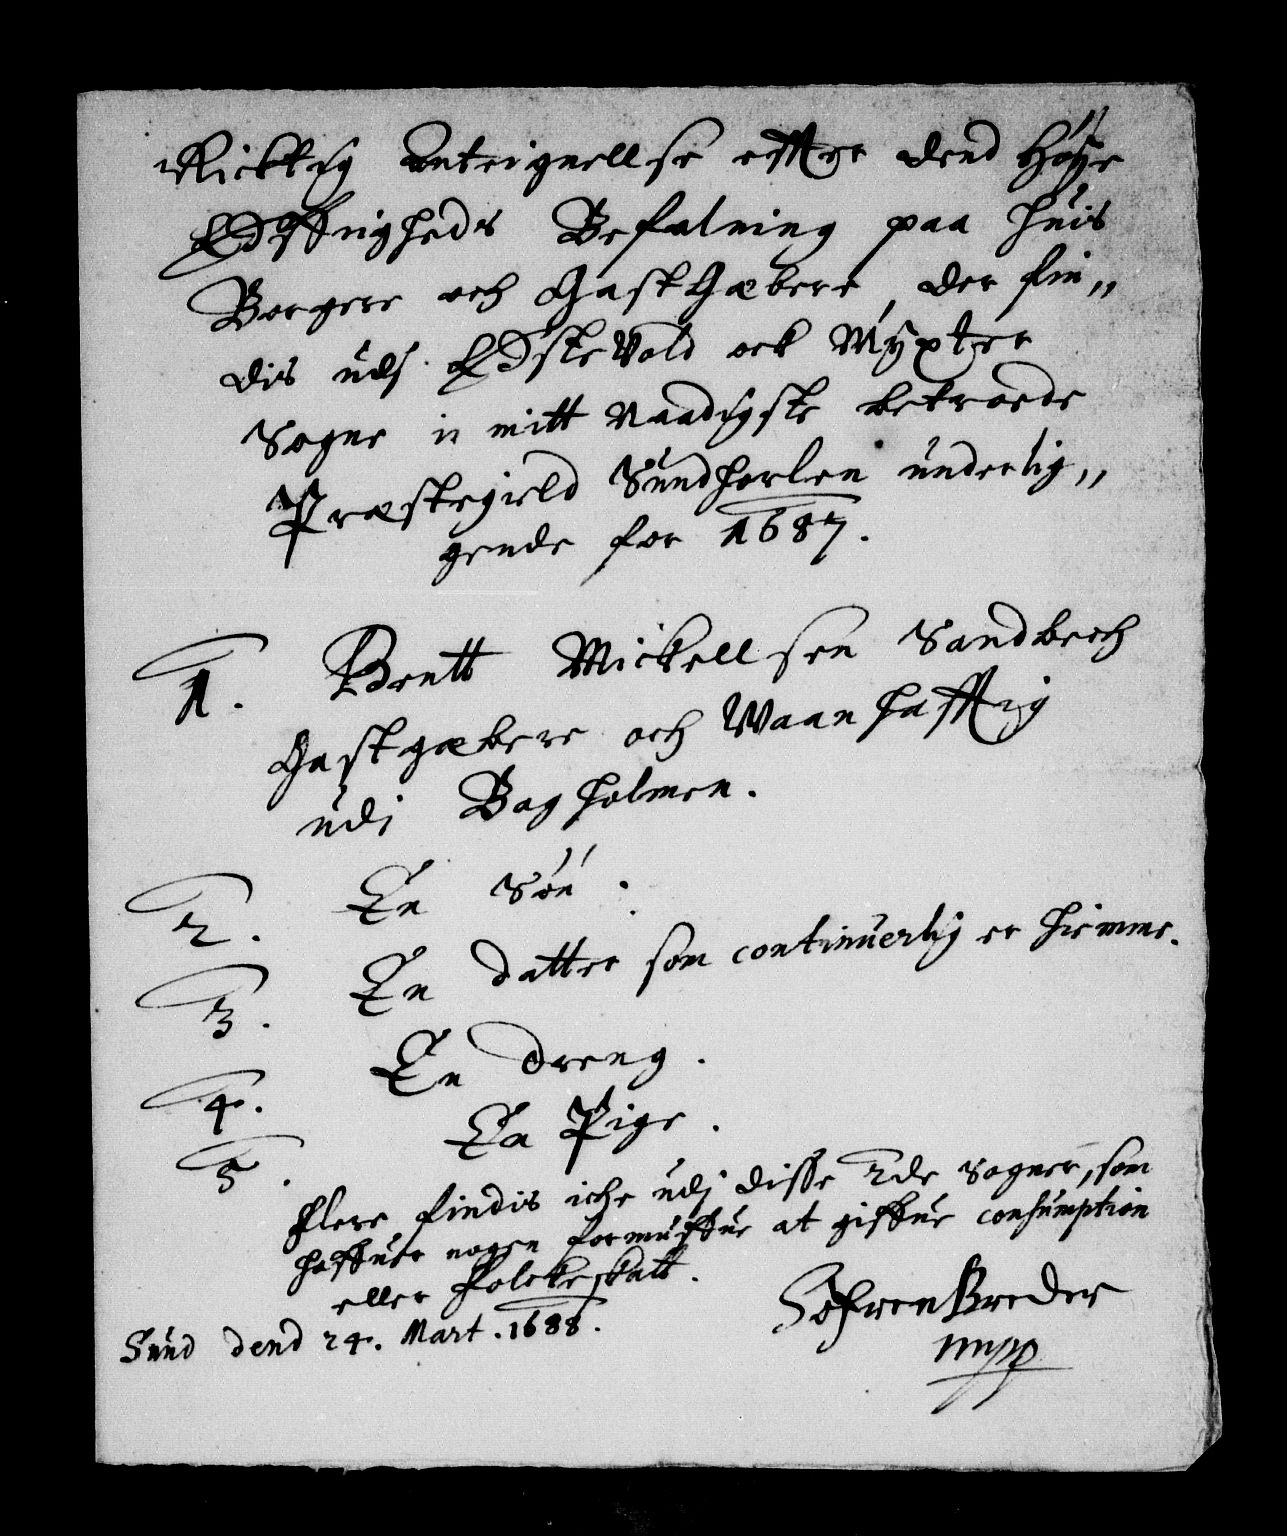 Ricktig Anteignellse effter dend Høÿe
Øffrigheds Befalning paa huis
Borgere och Gastgæbere, der fin,,
dis udj Østevold ock Mÿxter
Sogne ii mitt Naadigste betroede
Præstegield Sundhorlen underlig,,
gende for 1687.
1. Bentt Mickellsen Sandbech
Gastgæbere och Waanhafftig
udj Bagholmen.
2. En Søn.
3. En datter som continuerlig er hiemme.
4. En dreng.
5. En Pige.
flere findis iche udj disse 2de Sogner, som
haffuer nogen formuffue at giffue consumption
eller Folckeskatt.
Sund dend 24. Mart. 1688.
Søfren Breder
mpp